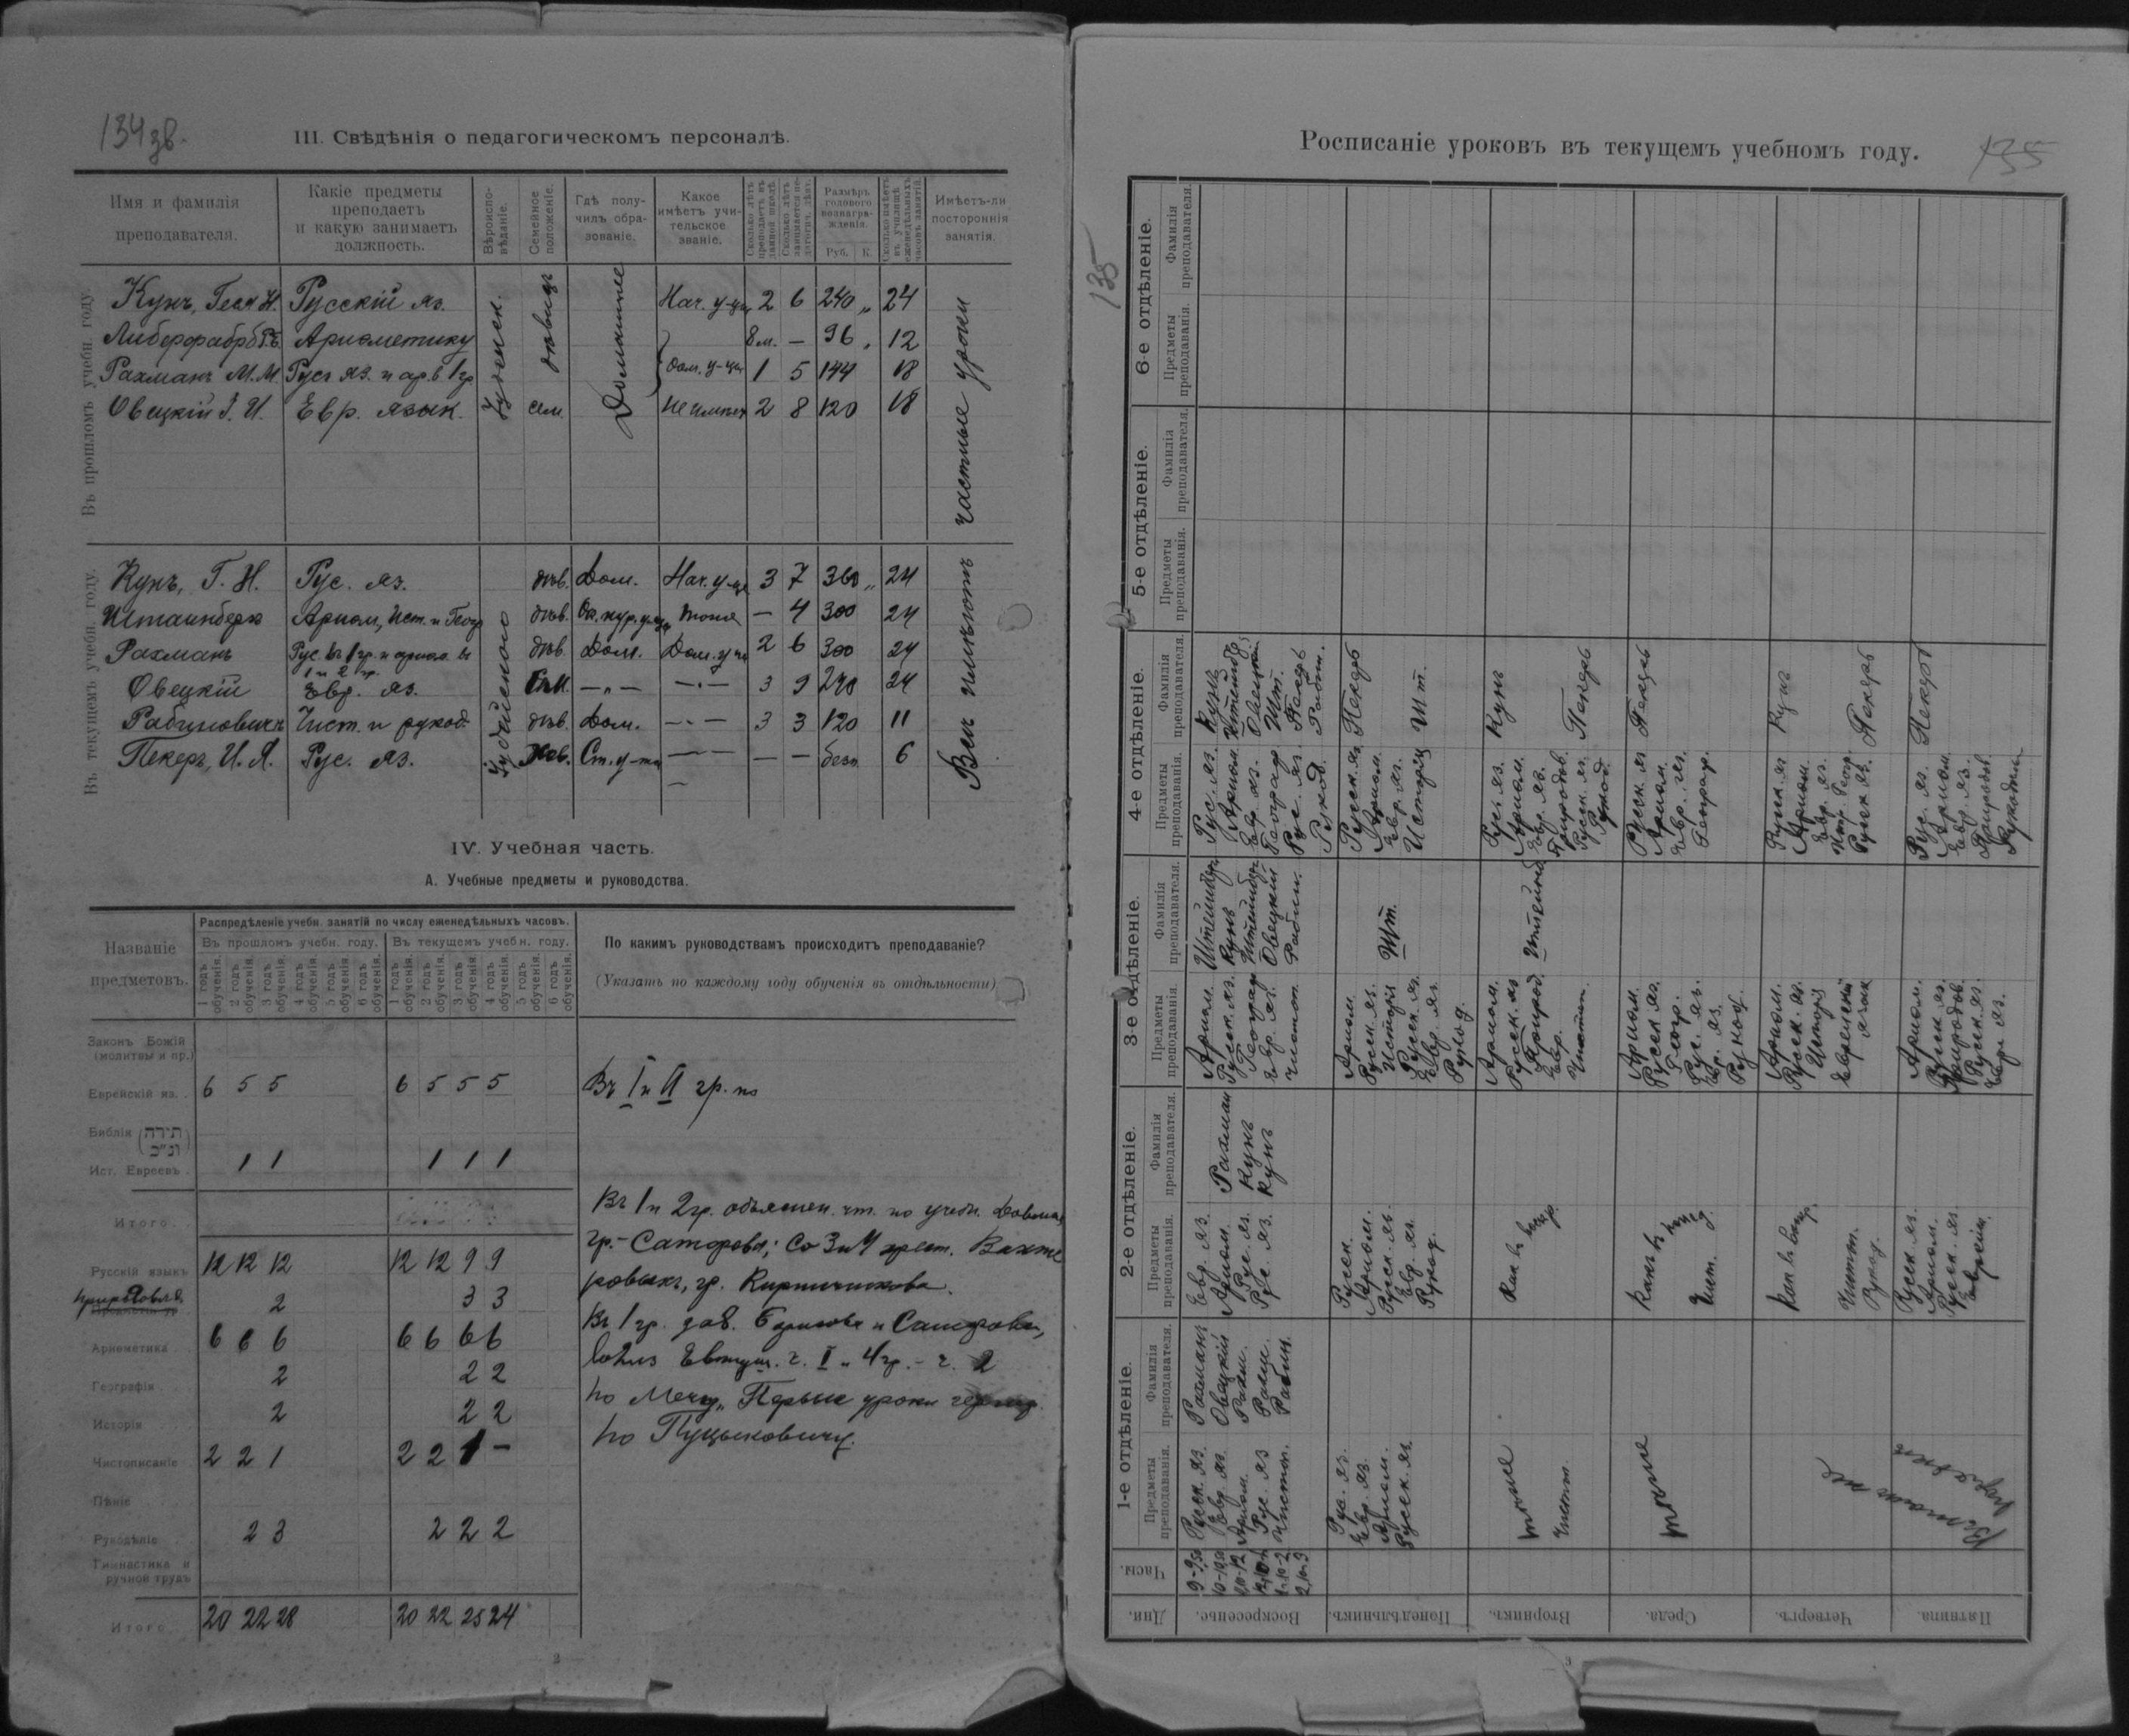 134 зв.
III. Свѣдѣнія о педагогическомъ персоналѣ.
Имя и фамилія преподавателя.
Какіе предметы преподаетъ и какую занимаетъ должность.
Вѣроисповѣданіе.
Семейное положеніе.
Гдѣ получилъ образованіе.
Какое имѣетъ учительское званіе.
Сколько лѣтъ преподаетъ въ данной школѣ.
Сколько лѣтъ занимается педагогич. дѣят.
Размѣръ годового вознагражденія.
Руб. К.
Сколько имѣетъ въ училищѣ еженедѣльныхъ часовъ занятій.
Имѣетъ-ли постороннія занятія.
Въ прошломъ учебн. году.
Кунъ, Геся Н. Русскій яз. Нач. у-цы 2 6 240 „ 24
Ариѳметику 8 м. — 96 „ 12
Рахманъ М. М. Русс яз. и ар. в 1 гр дом. у-цы 1 5 144 18
Овецкій І. И. Евр. язык. сем. не имѣет 2 8 120 18
Іудейск.
дѣвица
Домашнее
частные уроки
Въ текущемъ учебн. году.
Кунъ, Г. Н. Рус. яз. дѣв. Дом. Нач. у-цы 3 7 360 „ 24
Штаинберг Ариѳм, Ист. и Геогр дѣв. тоже — 4 300 24
Рахманъ Рус. въ 1 гр. и ариѳ. въ 1 и 2 гр. дѣв Дом. Дом. у-цы 2 6 300 24
Овецкій Евр. яз. Сем. — „ — — „ — 3 9 240 24
Рабиновичъ Чист. и рукод. дѣв. Дом. — „ — 3 3 120 11
Пекеръ, И. Я. Рус. яз. — — — безп. 6
Іудейского
Всѣ имѣютъ
IV. Учебная часть.
А. Учебные предметы и руководства.
Названіе предметовъ.
Распредѣленіе учебн. занятій по числу еженедѣльныхъ часовъ.
Въ прошломъ учебн. году. Въ текущемъ учебн. году.
1 годъ обученія. 2 годъ обученія. 3 годъ обученія. 4 годъ обученія. 5 годъ обученія. 6 годъ обученія.
1 годъ обученія. 2 годъ обученія. 3 годъ обученія. 4 годъ обученія. 5 годъ обученія. 6 годъ обученія.
По какимъ руководствамъ происходитъ преподаваніе?
(Указать по каждому году обученія въ отдѣльности)
Законъ Божій (молитвы и пр.)
Еврейскій яз. 6 5 5 6 5 5 5
Въ I и II гр. по
Библія (תורה ונ״כ)
Ист. Евреевъ 1 1 1 1 1
Итого
Русскій языкъ 12 12 12 12 12 9 9
2 3 3
Ариѳметика 6 6 6 6 6 6 6
Географія 2 2 2
Исторія 2 2 2
Чистописаніе 2 2 1 2 2 1 —
Пѣніе
Рукодѣліе 2 3 2 2 2
Гимнастика и ручной трудъ
Итого 20 22 28 20 22 25 24
Въ 1 и 2 гр. объяснен. чт. по учебн.
гр. – Сатарова; Со 3 и 4 хрест. Вахте
ровыхъ, гр. Кирпичникова.
Въ 1 гр. зад.
Евтуш. ч. I и 4 гр. – ч. 2
по Мечу „Первые уроки геогр.
по Пуцыковичу.
3
Росписаніе уроковъ въ текущемъ учебномъ году.
135
135
Дни. Часы.
1-е отдѣленіе. 2-е отдѣленіе. 3-е отдѣленіе. 4-е отдѣленіе. 5-е отдѣленіе. 6-е отдѣленіе.
Предметы преподаванія. Фамилія преподавателя.
Предметы преподаванія. Фамилія преподавателя.
Предметы преподаванія. Фамилія преподавателя.
Предметы преподаванія. Фамилія преподавателя.
Предметы преподаванія. Фамилія преподавателя.
Предметы преподаванія. Фамилія преподавателя.
Воскресенье.
Русск. яз. Рахманъ
Евр. яз. Овецкій
Ариѳм. Рахм.
Рус. яз Рахм.
Чистоп. Рабин.
Евр. яз. Рахман
Ариѳм. Кунъ
Рус. яз. Кунъ
Рус. яз.
Ариѳм. Штейнберг
Русск. яз. Кунъ
Географ Штейнбер
Евр. яз. Овецкій
Чистоп. Рабин.
Рус. яз. Кунъ
Ариѳм. Штейнб.
Евр. яз. Овецкій
Географ Шт.
Рус. яз. Пекеръ
Рукод. Рабин.
Понедѣльникъ.
Рус. яз.
Евр. яз.
Ариѳм.
Русск. яз.
Русск.
Ариѳм.
Русск. яз.
Евр. яз.
Рукод.
Ариѳм.
Русск. яз.
Исторія
Русск. яз.
Евр. яз.
Рукод.
Шт.
Русск. яз Пекеръ
Ариѳм.
Евр. яз.
Исторія Шт.
Вторникъ.
тоже
Чистоп.
Как въ воскр.
Ариѳм.
Русск. яз
Природ.
Евр.
Чистоп.
Штейнб
Русс яз. Кунъ
Ариѳм.
Евр. яз.
Природов.
Русск. яз. Пекеръ
Рукод.
Среда.
тоже
Какъ въ пон
Чист.
Ариѳм.
Русск яз.
Геогр.
Рус. яз.
Евр. яз.
Рукод.
Русск. яз Пекеръ
Ариѳм.
Евр. яз.
Географ.
Четвергъ.
Как въ воскр.
Чистп.
Рукод.
Ариѳм.
Русск. яз.
Исторія
Еврейскій языкъ
Русск. яз Кунъ
Ариѳм.
Евр. яз.
Русск яз. Пекеръ
Пятница.
Русск яз.
Ариѳм.
Русск. яз
Еврейск.
Ариѳм.
Русск яз.
Природов.
Русск. яз.
Евр. яз.
Рус. яз. Пекеръ
Ариѳм
Евр. яз.
Природов.
Рукодѣл.